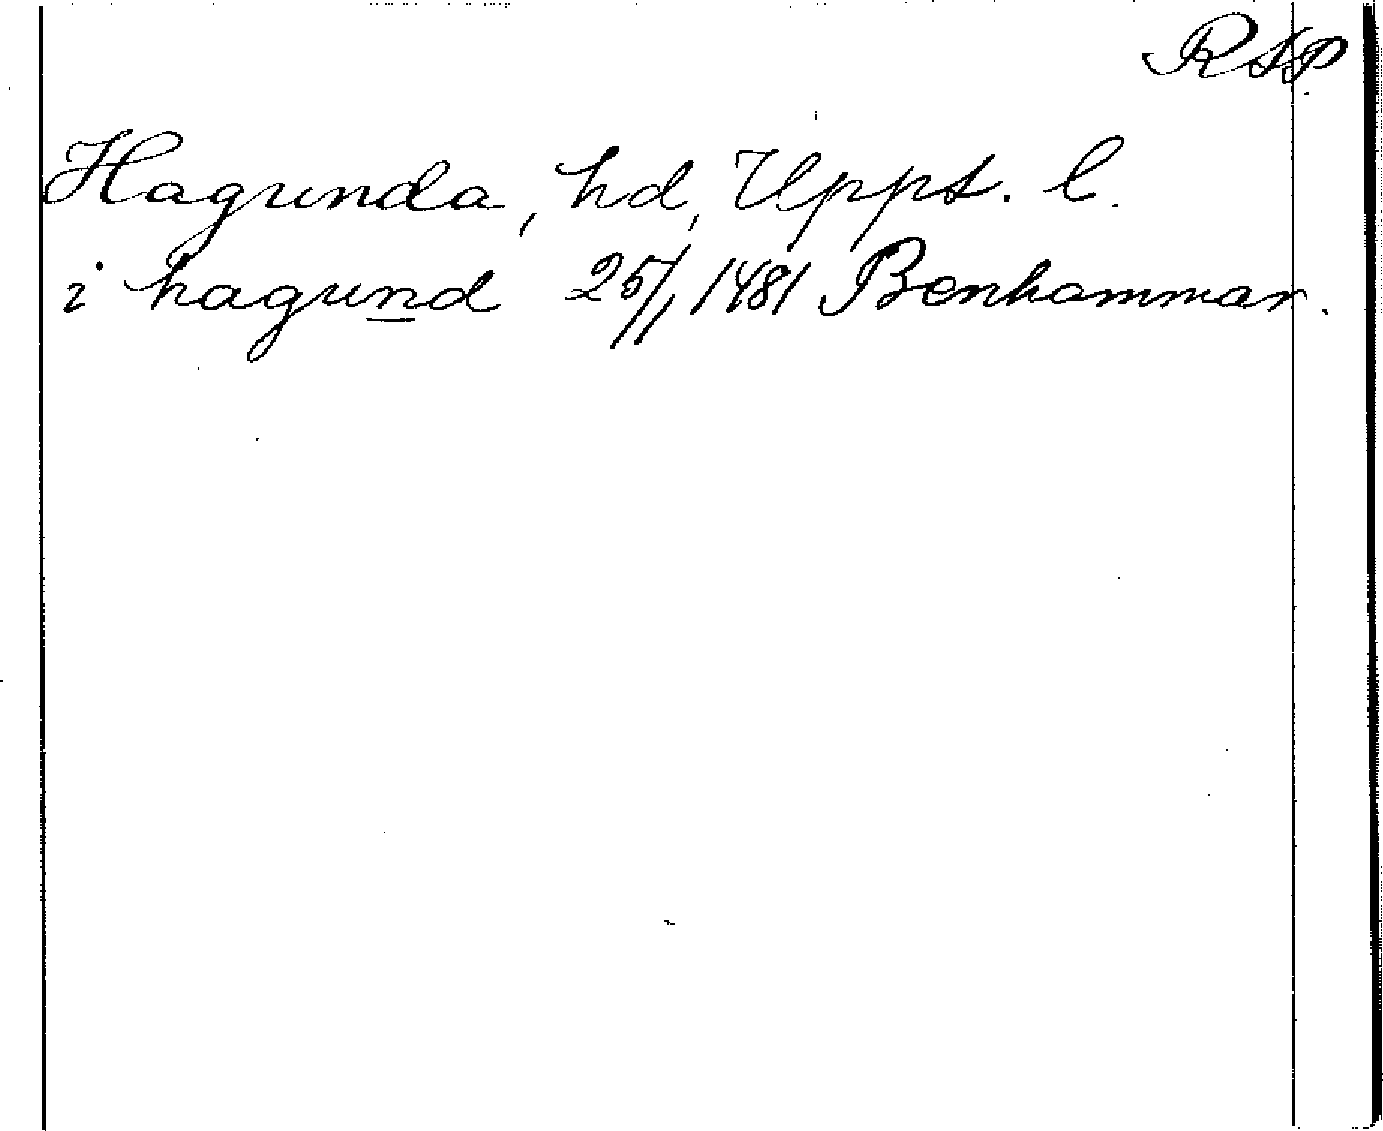 RAP
Hagunda, hd, Upps. l.
i hagund 25/11 1481 Benhammar.